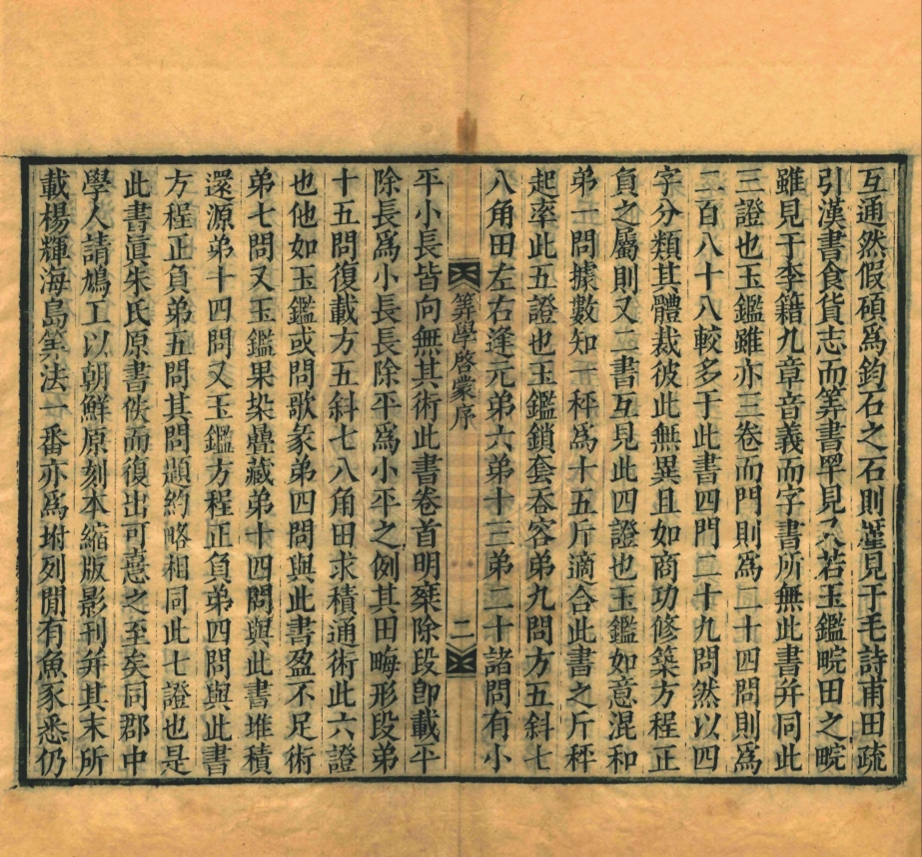 互通然假碩為鈞石之石則僅見于毛詩甫田疏
引漢書食貨志而筭書罕見又若玉鑑畹田之畹
雖見于李籍九章音義而字書所無此書并同此
三證也玉鑑雖亦三卷而門則為二十四問則為
二百八十八較多于此書四門二十九問然以四
字分類其體裁彼此無異且如商功修築方程正
負之屬則又二書互見此四證也玉鑑如意混和
弟一問據數知一秤為十五斤適合此書之斤秤
起率此五證也玉鑑鎖套吞容弟九問方五斜七
八角田左右逢元弟六弟十三弟二十諸問有小
筭學啓蒙序
二
平小長皆向無其術此書卷首明椉除段卽載平
除長為小長長除平為小平之例其田畮形段弟
十五問復載方五斜七八角田求積通術此六證
也他如玉鑑或問歌彖弟四問與此書盈不足術
弟七問又玉鑑果垜疊藏弟十四問與此書堆積
還源弟十四問又玉鑑方程正負弟四問與此書
方程正負弟五問其問題約略相同此七證也是
此書眞朱氏原書佚而復出可憙之至矣同郡中
學人請鳩工以朝鮮原刻本縮版影刊并其末所
載楊輝海島筭法一番亦為坿列閒有魚豕悉仍